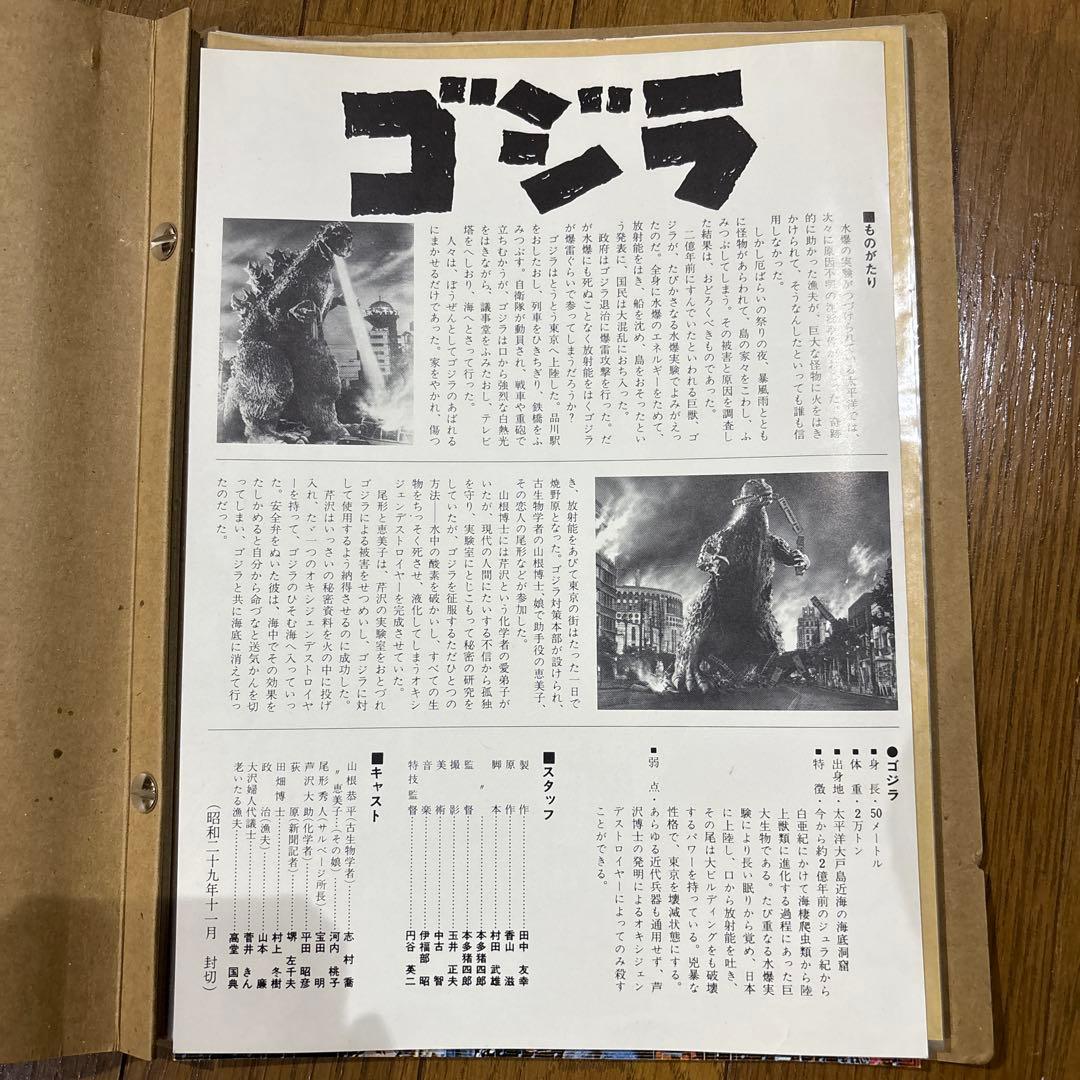 ゴジラ
■ものがたり
水爆の実験がつづけられている太平洋では、
次々に原因不明の
奇跡
的に助かった漁夫が、巨大な怪物に火をはき
かけられて、そうなんしたといっても誰も信
用しなかった。
しかし厄ばらいの祭りの夜、暴風雨ととも
に怪物があらわれて、島の家々をこわし、ふ
みつぶしてしまう。その被害と原因を調査し
た結果は、おどろくべきものであった。
二億年前にすんでいたといわれる巨獣、ゴ
ジラが、たびかさなる水爆実験でよみがえっ
たのだ。全身に水爆のエネルギーをためて、
放射能をはき、船を沈め、島をおそったとい
う発表に、国民は大混乱におち入った。
政府はゴジラ退治に爆雷攻撃を行った。だ
が水爆にも死ぬことなく放射能をはくゴジラ
が爆雷ぐらいで参ってしまうだろうか?
ゴジラはとうとう東京へ上陸した。品川駅
をおしたおし、列車をひきちぎり、鉄橋をふ
みつぶす。自衛隊が動員され、戦車や重砲で
立ちむかうが、ゴジラは口から強烈な白熱光
をはきながら、議事堂をふみたおし、テレビ
塔をへしおり、海へとさって行った。
人々は、ぼうぜんとしてゴジラのあばれる
にまかせるだけであった。家をやかれ、傷つ
き、放射能をあびて東京の街はたった一日で
焼野原となった。ゴジラ対策本部が設けられ、
古生物学者の山根博士、娘で助手役の恵美子、
その恋人の尾形などが参加した。
山根博士には芹沢という化学者の愛弟子が
いたが、現代の人間にたいする不信から孤独
を守り、実験室にとじこもって秘密の研究を
していたが、ゴジラを征服するただひとつの
方法――水中の酸素を破かいし、すべての生
物をちっそく死させ、液化してしまうオキシ
ジェンデストロイヤーを完成させていた。
尾形と恵美子は、芹沢の実験室をおとづれ
ゴジラによる被害をせつめいし、ゴジラに対
して使用するよう納得させるのに成功した。
芹沢はいっさいの秘密資料を火の中に投げ
入れ、たゞ一つのオキシジェンデストロイヤ
ーを持って、ゴジラのひそむ海へ入っていっ
た。安全弁をぬいた彼は、海中でその効果を
たしかめると自分から命づなと送気かんを切
ってしまい、ゴジラと共に海底に消えて行っ
たのだった。
●ゴジラ
■身長・50メートル
■体重・2万トン
■出身地・太平洋大戸島近海の海底洞窟
■特徴・今から約2億年前のジュラ紀から
白亜紀にかけて海棲爬虫類から陸
上獣類に進化する過程にあった巨
大生物である。たび重なる水爆実
験により長い眠りから覚め、日本
に上陸し、口から放射能を吐き、
その尾は大ビルディングをも破壊
するパワーを持っている。兇暴な
性格で、東京を壊滅状態にする。
■弱点・あらゆる近代兵器も通用せず、芦
沢博士の発明によるオキシジェン
デストロイヤーによってのみ殺す
ことができる。
■スタッフ
製作……田中友幸
原作……香山滋
脚本……村田武雄
〃……本多猪四郎
監督……本多猪四郎
撮影……玉井正夫
美術……中古智
音楽……伊福部昭
特技監督……円谷英二
■キャスト
山根恭平(古生物学者)……志村喬
〃恵美子(その娘)……河内桃子
尾形秀人(サルベージ所長)……宝田明
芦沢大助(化学者)……平田昭彦
荻原(新聞記者)……堺左千夫
田畑博士……村上冬樹
政治(漁夫)……山本廉
大沢婦人代議士……菅井きん
老いたる漁夫……高堂国典
(昭和二十九年十一月 封切)